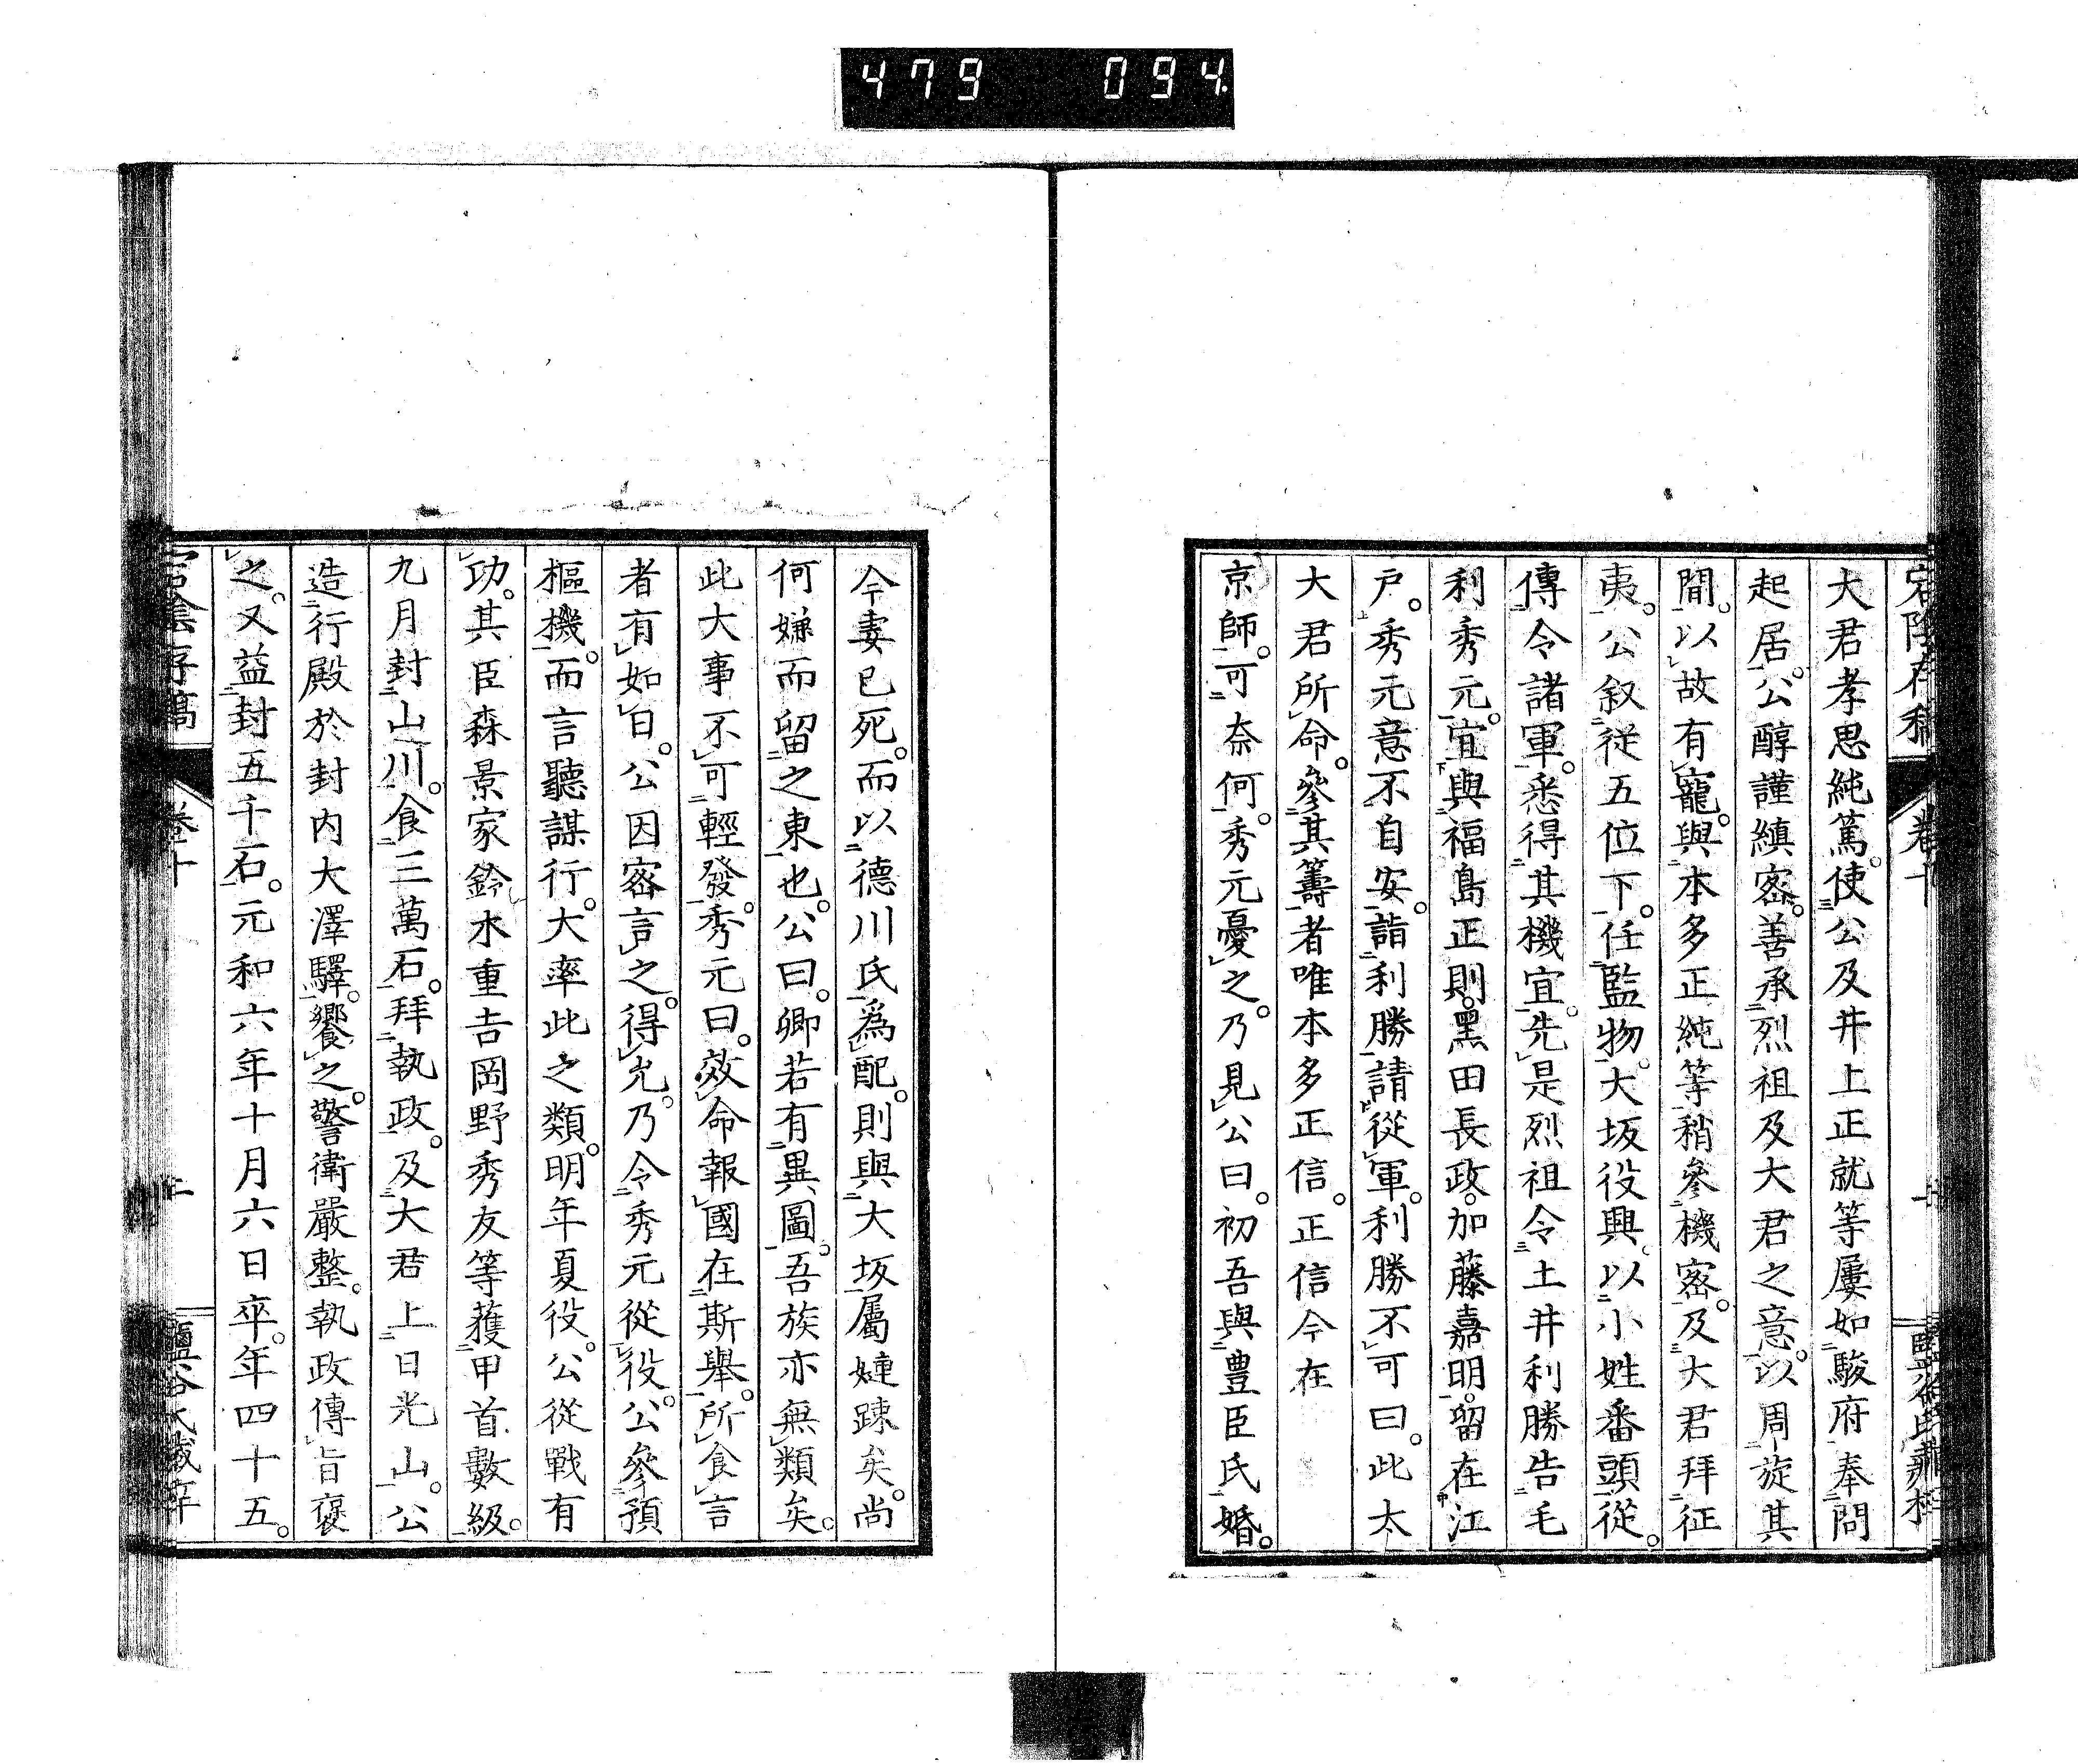 479 094
宕陰存稿 卷十
大君孝思純篤。使公及井上正就等屢如駿府。奉問
起居。公醇謹縝密。善承烈祖及大君之意。以周旋其
間。以故有寵。與本多正純等稍參機密。及大君拜征
夷。公叙從五位下。任監物。大坂役興。以小姓番頭從。
傳令諸軍。悉得其機宜。先是烈祖令土井利勝告毛
利秀元。宜與福島正則。黑田長政。加藤嘉明。留在江
戶。秀元意不自安。詣利勝請從軍。利勝不可曰。此大
大君所命。參其籌者唯本多正信。正信今在
京師。可奈何。秀元憂之。乃見公曰。初吾與豊臣氏婚。
今妻已死。而以德川氏爲配。則與大坂屬婕踈矣。尚
何嫌而留之東也。公曰。卿若有異圖。吾族亦無類矣。
此大事不可輕發。秀元曰。效命報國在斯舉。所食言
者有如日。公因密言之。得允。乃令秀元從役。公參預
樞機。而言聽謀行。大率此之類。明年夏役。公從戰有
功。其臣森景家鈴木重吉岡野秀友等獲甲首數級。
九月封山川。食三萬石。拜執政。及大君上日光山。公
造行殿於封内大澤驛。饗之。警衛嚴整。執政傳旨褒
之。又益封五千石。元和六年十月六日卒。年四十五。
宕陰存稿 卷十